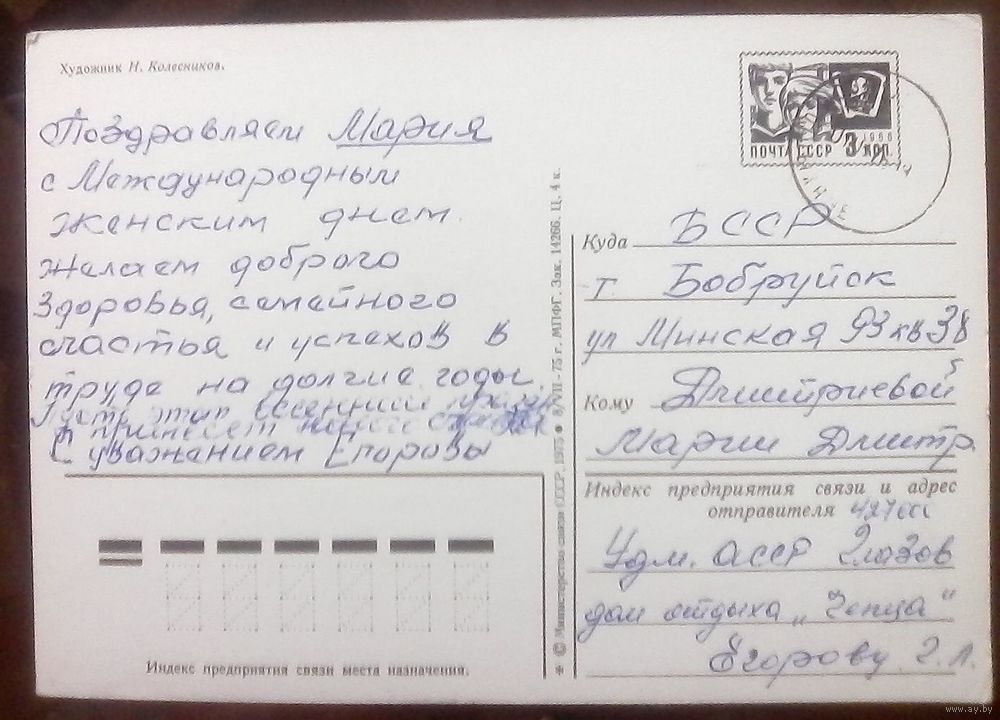 Художник Н. Колесников.
Поздравляем Мария
с Международным
женским днем.
Желаем доброго
здоровья, семейного
счастья и успехов в
труде на долгие годы.
Пусть этот весенний
принесет
С уважением Егоровы
Индекс предприятия связи места назначения.
© Министерство связи СССР, 1975 ● 8/VII-75 г. МПФГ. Зак. 14266. Ц. 4 к.
ПОЧТА СССР 3 коп.
1966
Куда БССР
г. Бобруйск
ул Минская 93 кв 38
Кому Дмитриевой
Марии Дмитр.
Индекс предприятия связи и адрес
отправителя
Удм. АССР Глазов
дом отдыха „Чепца"
Егорову Г. Л.
www.ay.by